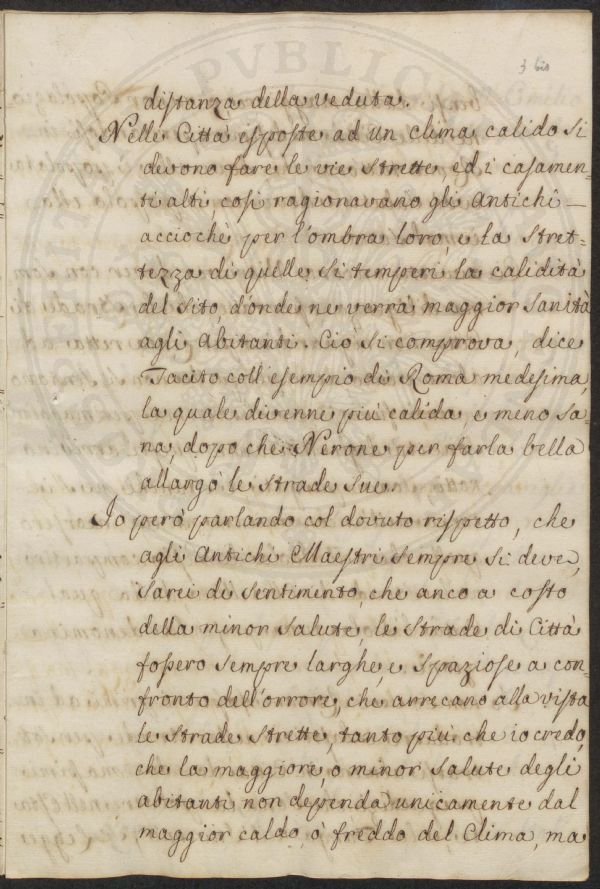 3 bis
distanza della veduta.
Nelle Città esposte ad un clima calido si
devono fare le vie strette, ed i casamen-
ti alti, così ragionavano gli Antichi —
acciochè per l'ombra loro, e la stret-
tezza di quelle si temperi la calidità
del sito, donde ne verrà maggior sanità
agli Abitanti. Ciò si comprova, dice
Tacito coll' esempio di Roma medesima,
la quale divenne più calida, e meno sa-
na, dopo che Nerone per farla bella
allargò le strade sue.
Io però parlando col dovuto rispetto, che
agli Antichi Maestri sempre si deve,
sarei di sentimento, che anco a costo
della minor salute, le strade di Città
fossero sempre larghe, e spaziose a con-
fronto dell'orrore, che arrecano alla vista
le strade strette, tanto più che io credo,
che la maggiore, o minor salute degli
abitanti non dependa unicamente dal
maggior caldo, ò freddo del Clima, ma